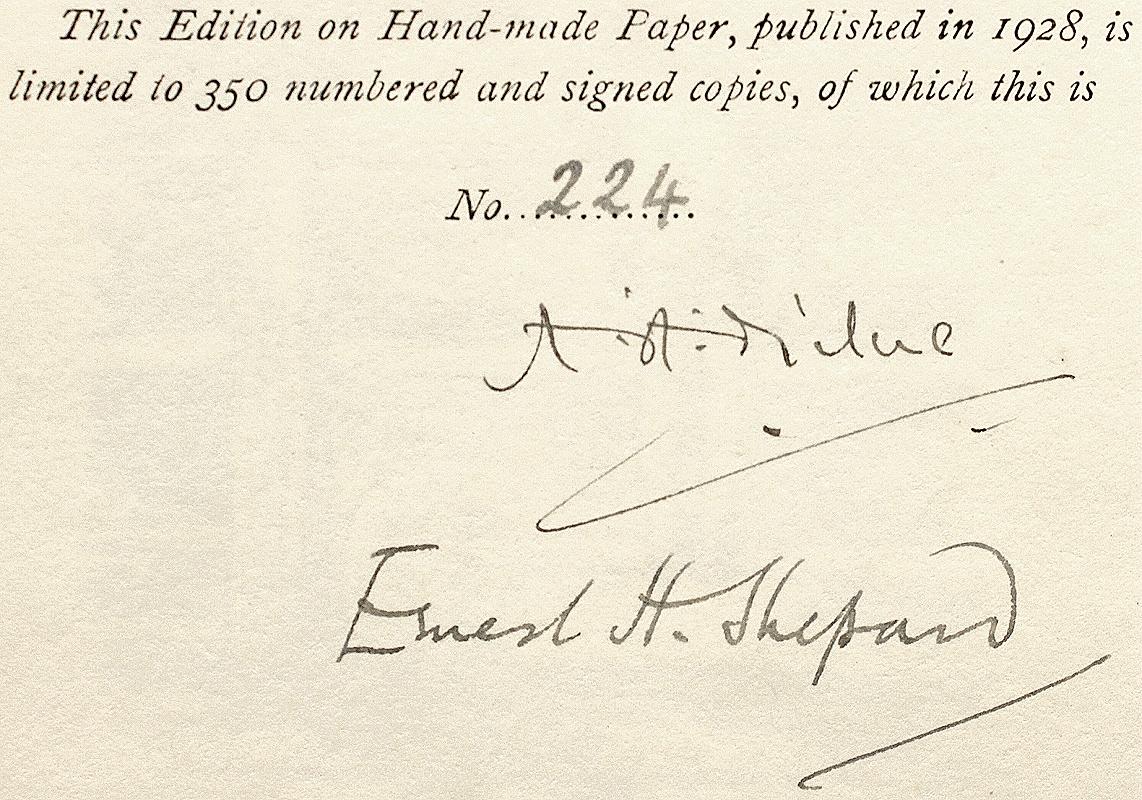 This Edition on Hand-made Paper, published in 1928, is
limited to 350 numbered and signed copies, of which this is
No. 224
A. A. Milne
Ernest H. Shepard